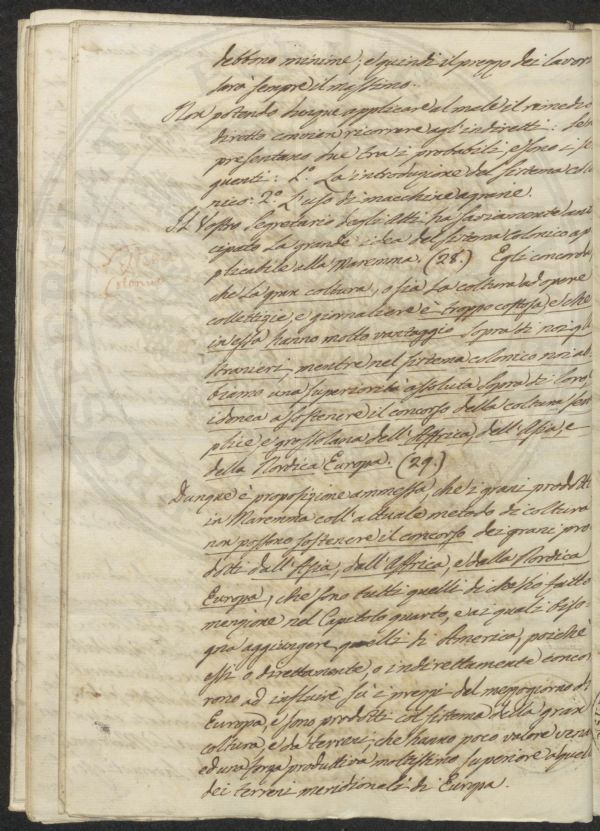 debbono minime; e quindi il prezzo dei lavori
sarà sempre il massimo.
Non potendo dunque applicare al male il rimedio
diretto convien ricorrere agl'indiretti: Se ne
presentano due tra i probabili, e sono i se
guenti: 1.º La introduzione del sistema colo
nico: 2.º L'uso di macchine agrarie.
Il Vostro Segretario degli Atti ha saviamente anti
cipato la grande idea del sistema colonico ap
plicabile alla Maremma. (28.) Egli concorda
che la gran coltura, o sia la coltura ad opere
collettizie e giornaliere è troppo costosa, e che
in essa hanno molto vantaggio sopra di noi gli
stranieri, mentre nel sistema colonico noi ab
biamo una superiorità assoluta sopra di loro,
idonea a sostenere il concorso della coltura sem
plice e grossolana dell'Affrica, dell'Asia, e
della Nordica Europa. (29.)
Sistema
Colonico
Dunque è proposizione ammessa, che i grani prodotti
in Maremma coll'attuale metodo di coltura
non possono sostenere il concorso dei grani pro
dotti dall'Asia, dall'Affrica, e dalla Nordica
Europa, che sono tutti quelli di che ho fatto
menzione nel Capitolo quarto, e ai quali biso
gna aggiungere quelli di America, poichè
essi o direttamente, o indirettamente concor
rono ad influire su i prezzi del mezzogiorno di
Europa, e sono prodotti col sistema della gran
coltura, e da terreni, che hanno poco valore venale
ed una forza produttiva moltissimo superiore a quella
dei terreni meridionali di Europa.